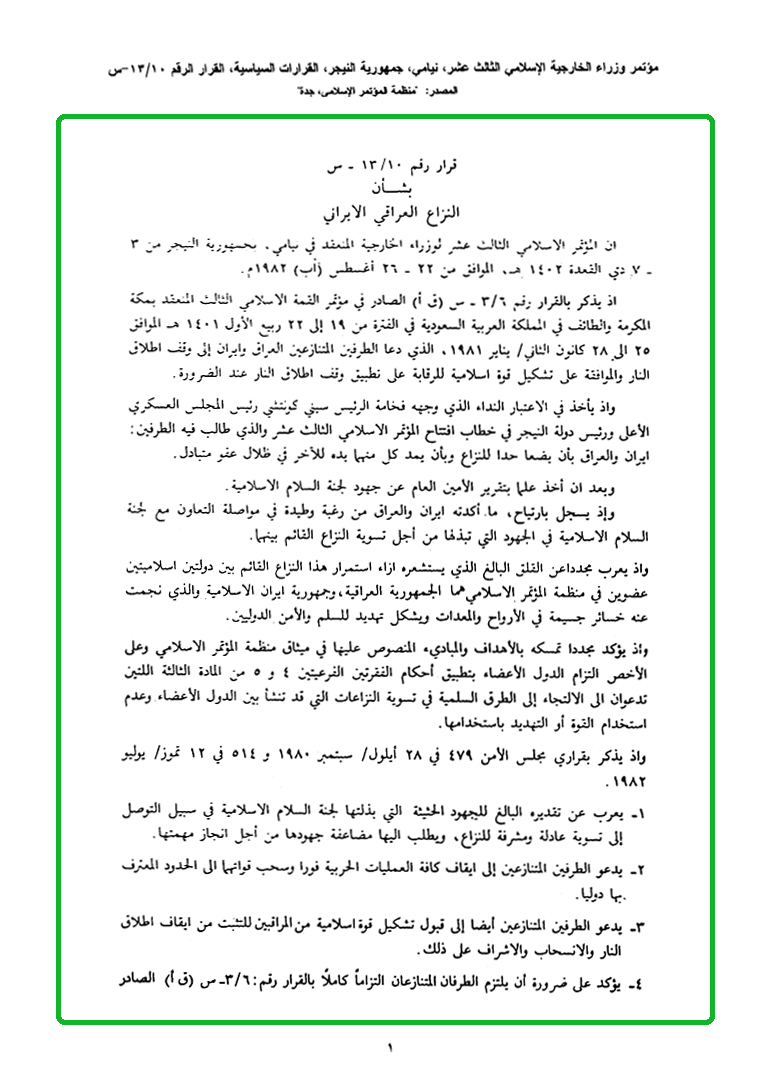 مؤتمر وزراء الخارجية الإسلامي الثالث عشر، نيامي، جمهورية النيجر، القرارات السياسية، القرار الرقم ١٣/١٠-س
المصدر: "منظمة المؤتمر الإسلامي، جدة"
قرار رقم ١٣/١٠ - س
بشـــأن
النزاع العراقي الايراني
ان المؤتمر الاسلامي الثالث عشر لوزراء الخارجية المنعقد في نيامي، بجمهورية النيجر من ٣
- ٧ ذي القعدة ١٤٠٢ هـ، الموافق من ٢٢ - ٢٦ أغسطس (آب) ١٩٨٢م.
اذ يذكر بالقرار رقم ٣/٦ - س (ق أ) الصادر في مؤتمر القمة الاسلامي الثالث المنعقد بمكة
المكرمة والطائف في المملكة العربية السعودية في الفترة من ١٩ إلى ٢٢ ربيع الأول ١٤٠١ هـ الموافق
٢٥ الى ٢٨ كانون الثاني/ يناير ١٩٨١، الذي دعا الطرفين المتنازعين العراق وايران إلى وقف اطلاق
النار والموافقة على تشكيل قوة اسلامية للرقابة على تطبيق وقف اطلاق النار عند الضرورة.
واذ يأخذ في الاعتبار النداء الذي وجهه فخامة الرئيس سيني كونتشي رئيس المجلس العسكري
الأعلى ورئيس دولة النيجر في خطاب افتتاح المؤتمر الاسلامي الثالث عشر والذي طالب فيه الطرفين:
ايران والعراق بأن يضعا حدا للنزاع وبأن يمد كل منهما يده للآخر في ظلال عفو متبادل.
وبعد ان أخذ علما بتقرير الأمين العام عن جهود لجنة السلام الاسلامية.
وإذ يسجل بارتياح، ما أكدته ايران والعراق من رغبة وطيدة في مواصلة التعاون مع لجنة
السلام الاسلامية في الجهود التي تبذلها من أجل تسوية النزاع القائم بينهما.
واذ يعرب مجددا عن القلق البالغ الذي يستشعره ازاء استمرار هذا النزاع القائم بين دولتين اسلاميتين
عضوين في منظمة المؤتمر الاسلامي هما الجمهورية العراقية، وجمهورية ايران الاسلامية والذي نجمت
عنه خسائر جسيمة في الأرواح والمعدات ويشكل تهديد للسلم والأمن الدوليين.
واذ يؤكد مجددا تمسكه بالأهداف والمباديء المنصوص عليها في ميثاق منظمة المؤتمر الاسلامي وعلى
الأخص التزام الدول الأعضاء بتطبيق أحكام الفقرتين الفرعيتين ٤ و ٥ من المادة الثالثة اللتين
تدعوان الى الالتجاء إلى الطرق السلمية في تسوية النزاعات التي قد تنشأ بين الدول الأعضاء وعدم
استخدام القوة أو التهديد باستخدامها.
واذ يذكر بقراري مجلس الأمن ٤٧٩ في ٢٨ أيلول/ سبتمبر ١٩٨٠ و ٥١٤ في ١٢ تموز/ يوليو
١٩٨٢.
١- يعرب عن تقديره البالغ للجهود الحثيثة التي بذلتها لجنة السلام الاسلامية في سبيل التوصل
إلى تسوية عادلة ومشرفة للنزاع، ويطلب اليها مضاعفة جهودها من أجل انجاز مهمتها.
٢- يدعو الطرفين المتنازعين إلى ايقاف كافة العمليات الحربية فورا وسحب قواتهما الى الحدود المعترف
بها دوليا.
٣- يدعو الطرفين المتنازعين أيضا إلى قبول تشكيل قوة اسلامية من المراقبين للتثبت من ايقاف اطلاق
النار والانسحاب والاشراف على ذلك.
٤- يؤكد على ضرورة أن يلتزم الطرفان المتنازعان التزاماً كاملًا بالقرار رقم: ٣/٦- س (ق أ) الصادر
١